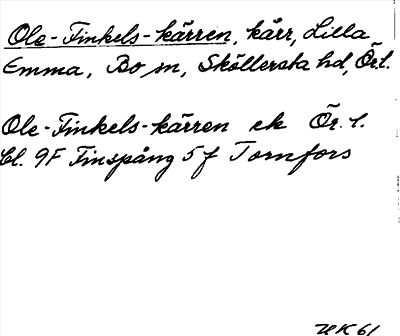 Ole-Finkels-kärren, kärr, Lilla
Emma, Bo sn, Sköllersta hd, Örl.
Ole-Finkels-kärren ek Ör. l.
bl. 9F Finspång 5 f Tornfors
HK 61